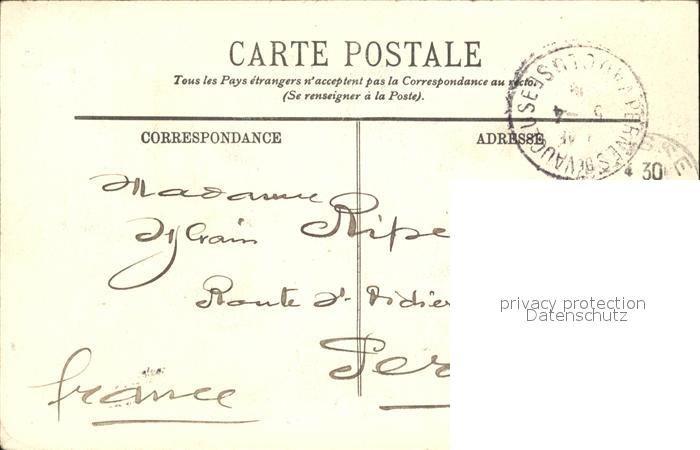 CARTE POSTALE
Tous les Pays étrangers n'acceptent pas la Correspondance au recto.
(Se renseigner à la Poste).
CORRESPONDANCE
ADRESSE
PERNES DE VAUCLUSE
30
Madame
Sylvain Ripe
Route St-Didier
Per
France
privacy protection
Datenschutz